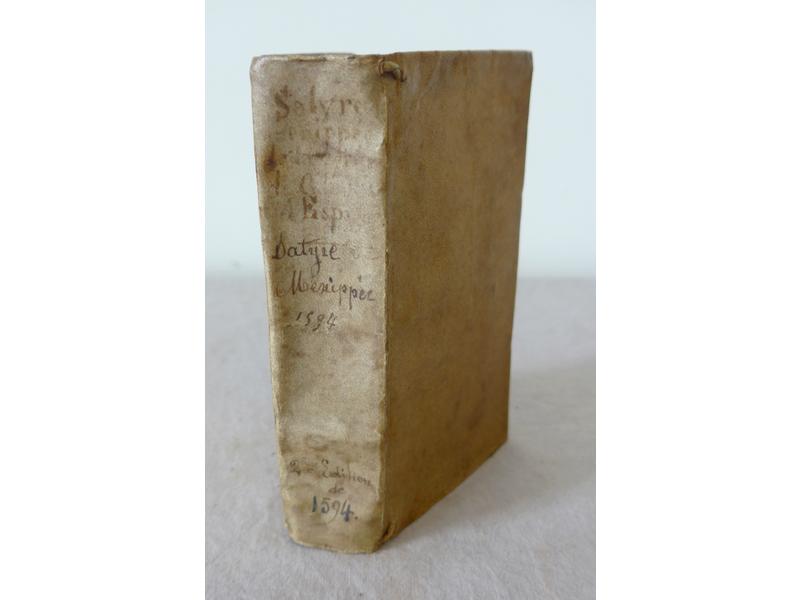 Satyre
d'Esp
Satyre
Menippée
1594
2e Edition
de
1594.